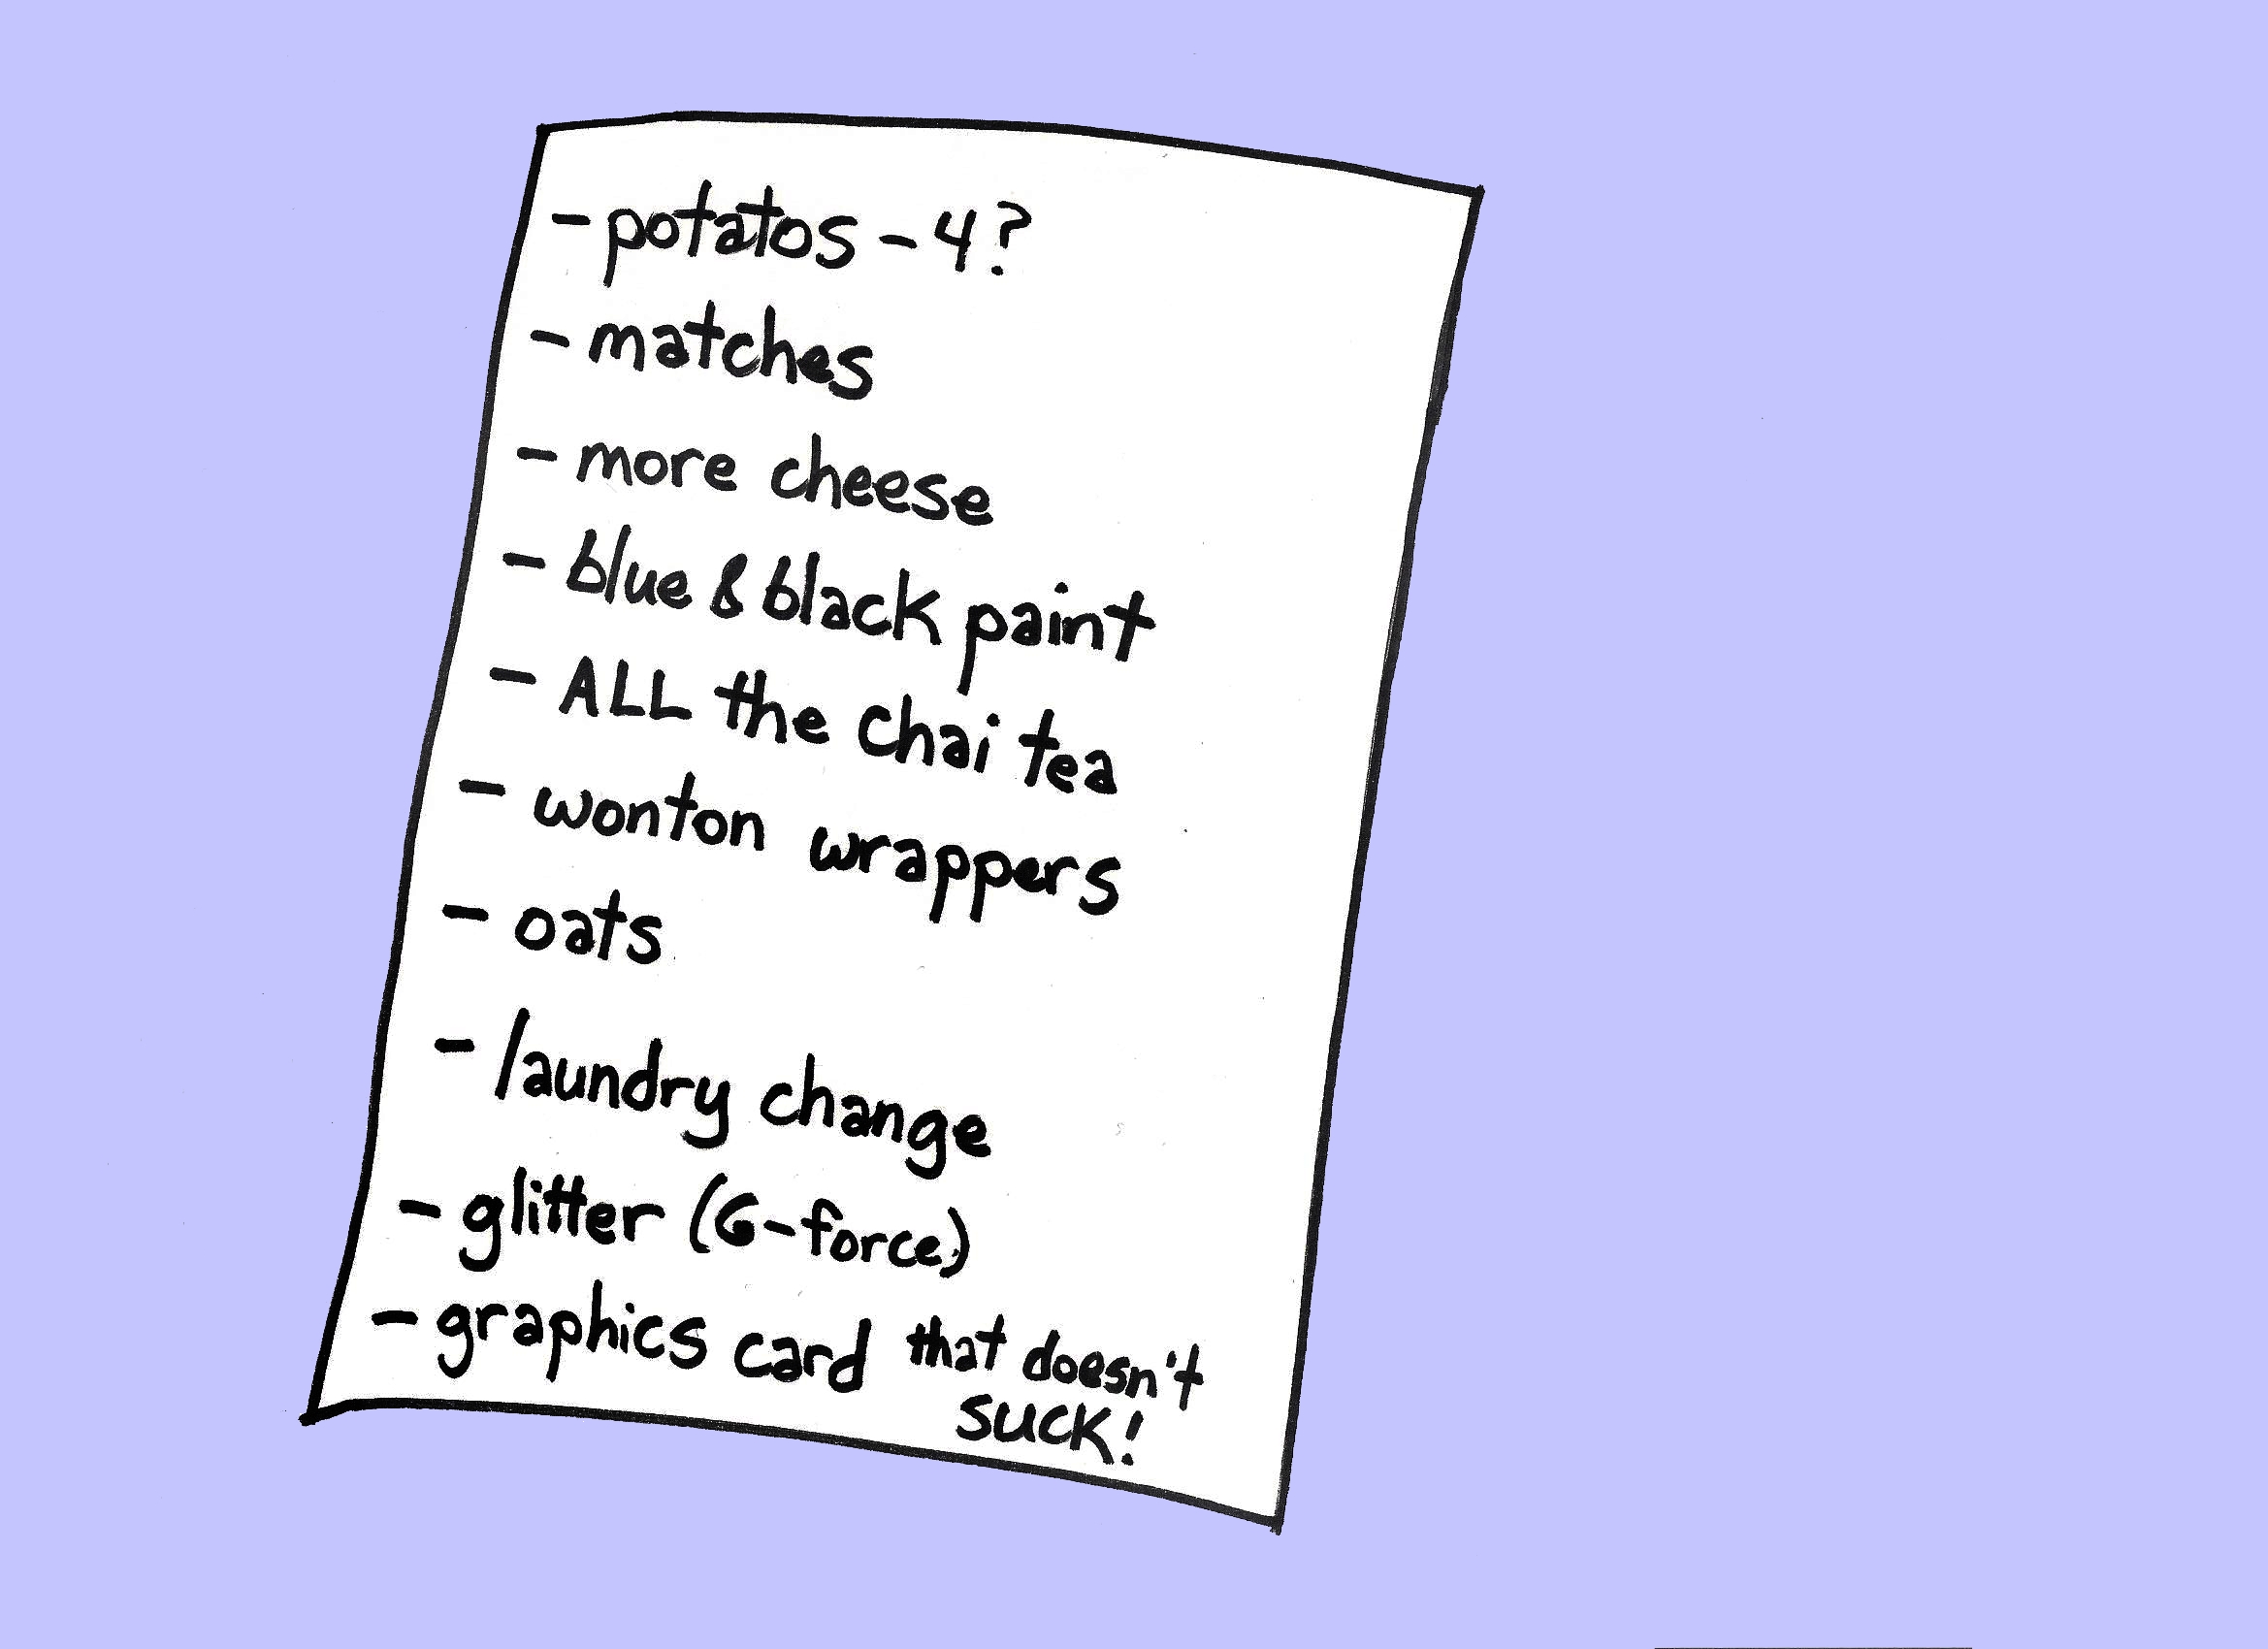 - potatos - 4?
- matches
- more cheese
- blue & black paint
- ALL the chai tea
- wonton wrappers
- oats
- laundry change
- glitter (G-force)
- graphics card that doesn't
SUCK!